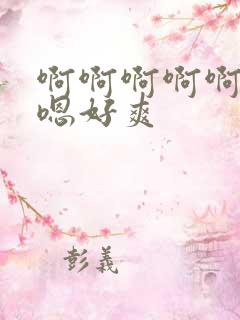 啊啊啊啊啊
嗯好爽
彭義